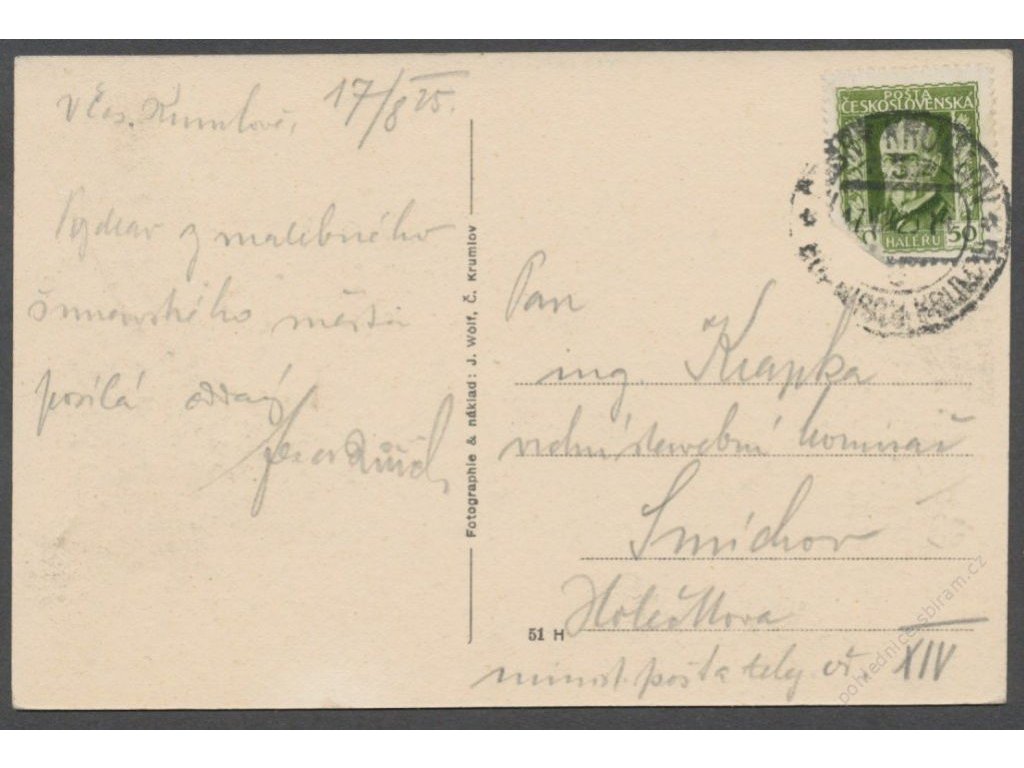 v Čes. Krumlově, 17/8 25.
Pozdrav z malebného
šumavského města
posílá oddaný
Fotographie & náklad: J. Wolf, Č. Krumlov
51 H
POŠTA
ČESKOSLOVENSKA
50
HALÉŘŮ
ČESKÝ KRUMLOV
Pan
ing. Krapka
vrchní stavební komisař
Smíchov
Holečkova
minist. pošt a telegr. XIV
pohlednice.sbiram.cz